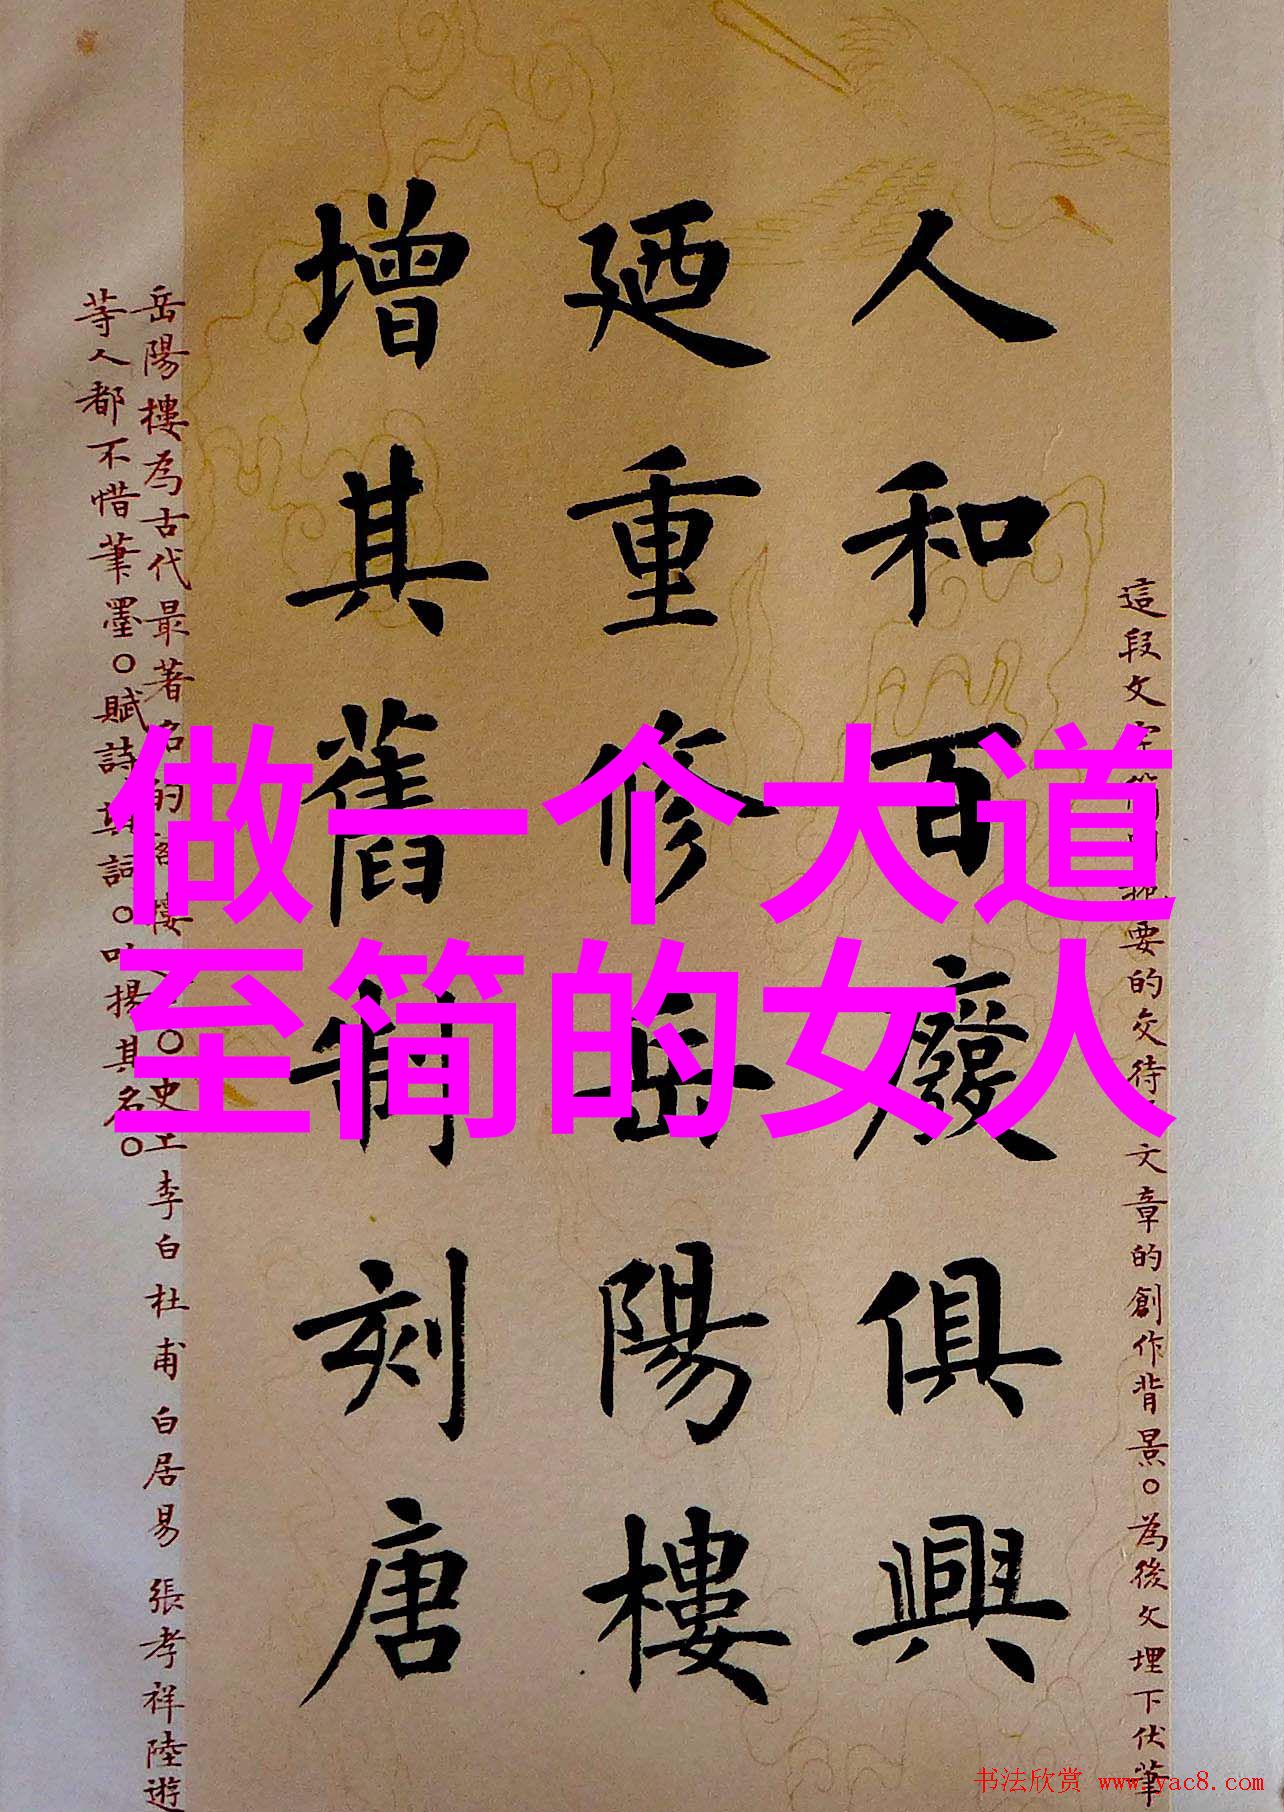 做一个大道
至简的女人
這段文字簡明扼要的交待文章的創作背景。為後文埋下伏筆
人和百廢俱興
廼重修岳陽樓
增其舊制刻唐
岳陽樓為古代最著名的樓。史上李白杜甫白居易張孝祥陸遊
等人都不惜筆墨。賦詩詞。揚其名。
书法欣赏 www.yac8.com